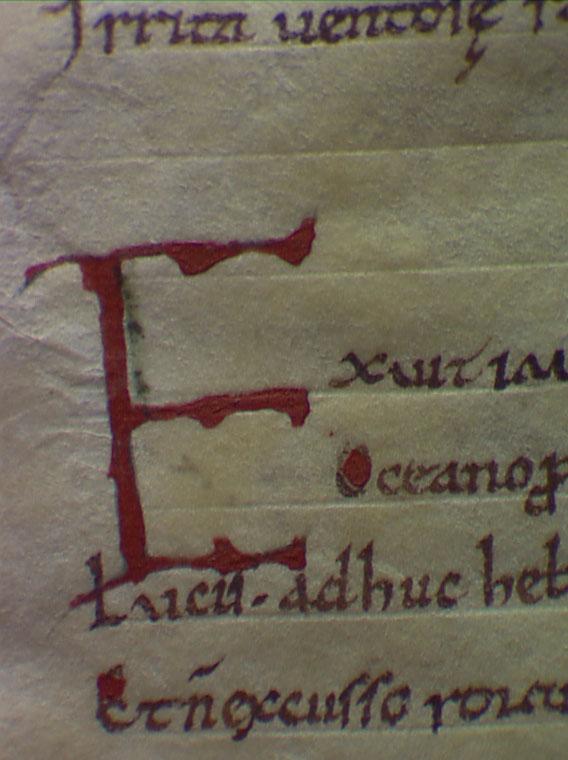 Irrita uentosę
Exuit im
Oceano ꝓ
Lucis. adhuc heb
Et n̄ excusso